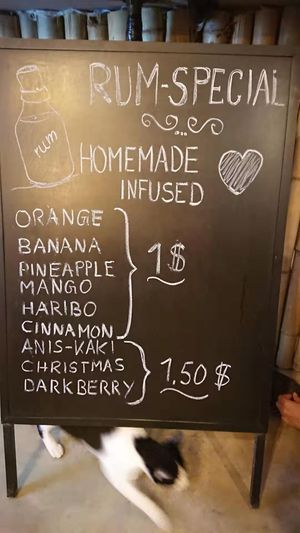 RUM-SPECIAL
rum
HOMEMADE
INFUSED
ORANGE
BANANA
PINEAPPLE
MANGO
HARIBO
CINNAMON
1$
ANIS-KAKI
CHRISTMAS
DARKBERRY
1,50 $